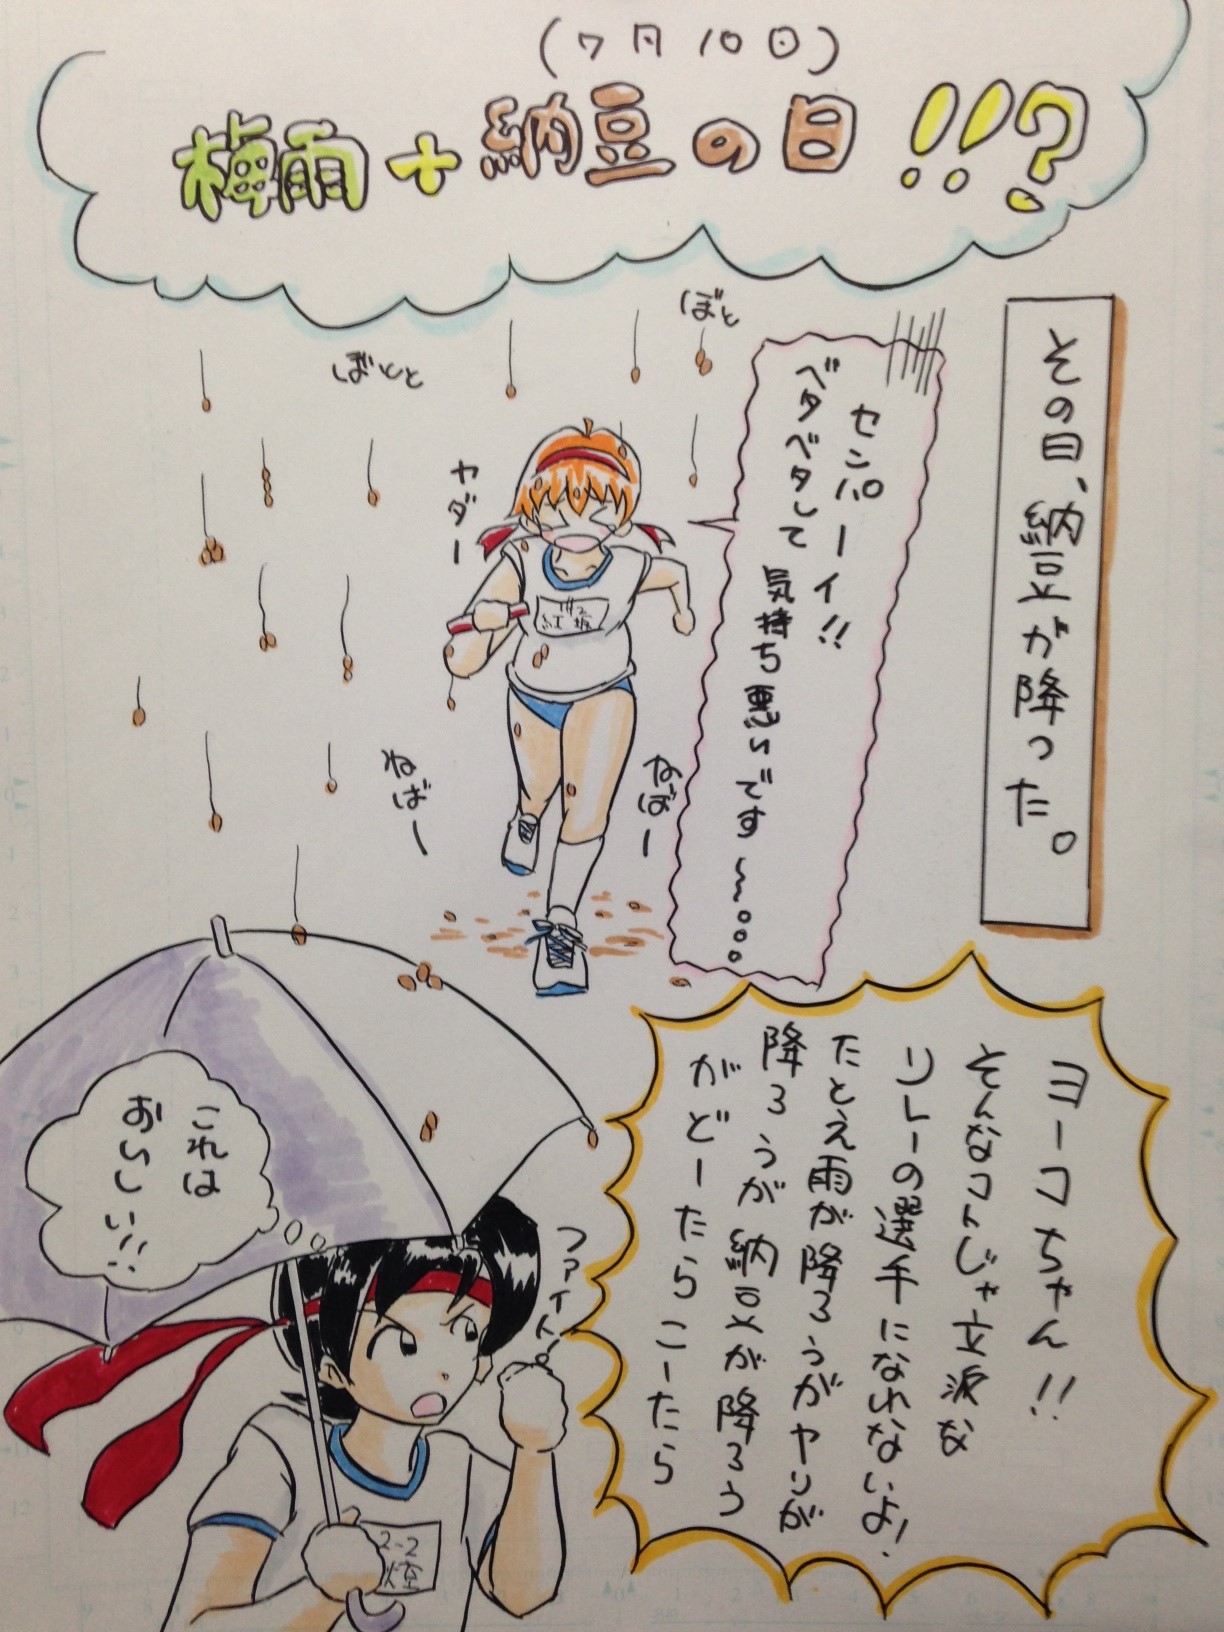 (7月10日)
梅雨+納豆の日!!?
その日、納豆が降った。
ぼと
ぼとと
センパーイ!!
ベタベタして
気持ち悪いです〜。。。
ヤダー
ねばー
ねばー
ヨーコちゃん!!
そんなコトじゃ立派な
リレーの選手になれないよ!
たとえ雨が降ろうがヤリが
降ろうが納豆が降ろう
がどーたらこーたら
これは
おいしい!!
ファイト。
2-2